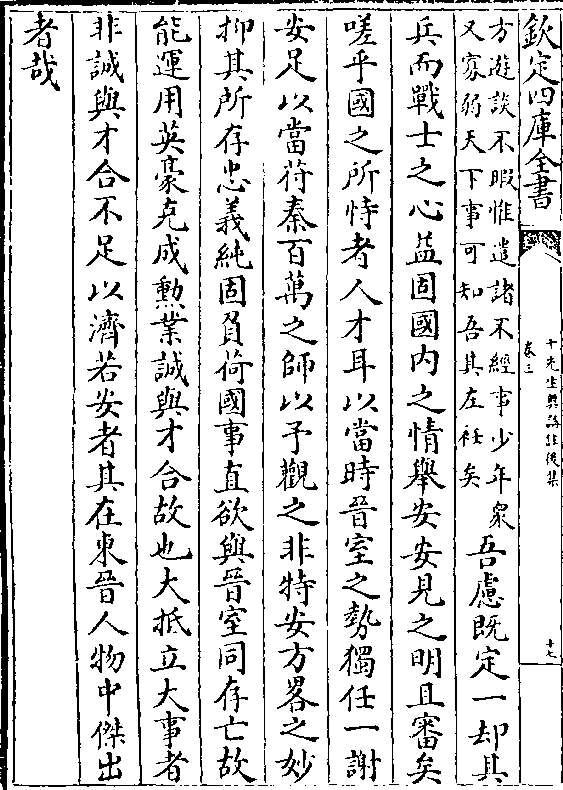 欽定四庫全書
十先生奧論註後集
卷三
十七
方遊談不暇惟遣諸不經事少年衆
又寡弱天下事可知吾其左衽矣
吾慮既定一却其
兵而戰士之心益固國内之情舉安安見之明且審矣
嗟乎國之所恃者人才耳以當時晉室之勢獨任一謝
安足以當苻秦百萬之師以予觀之非特安方畧之妙
抑其所存忠義純固負荷國事直欲與晉室同存亡故
能運用英豪克成勲業誠與才合故也大抵立大事者
非誠與才合不足以濟若安者其在東晉人物中傑出
者哉